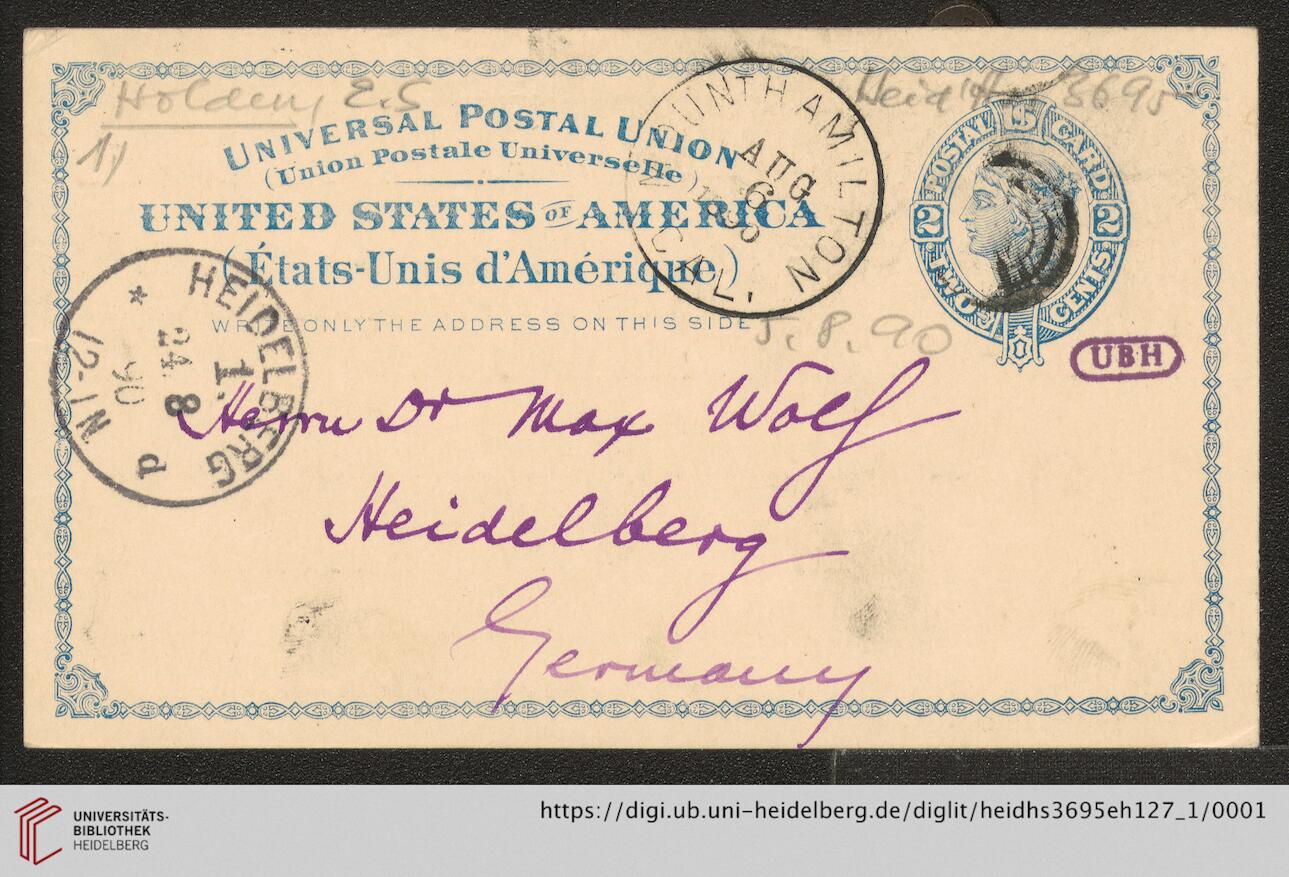 Holden, E.S
1)
Heid Hs 3695
UNIVERSAL POSTAL UNION
(Union Postale Universelle)
UNITED STATES OF AMERICA
(États-Unis d'Amérique)
WRITE ONLY THE ADDRESS ON THIS SIDE
MOUNT HAMILTON
AUG
6
CAL.
POSTAL CARD
2 2
TWO CENTS
5.8.90
UBH
HEIDELBERG
1.
24. 8
90
12-1N
*
d
Herrn Dr Max Wolf
Heidelberg
Germany
UNIVERSITÄTS-
BIBLIOTHEK
HEIDELBERG
https://digi.ub.uni-heidelberg.de/diglit/heidhs3695eh127_1/0001